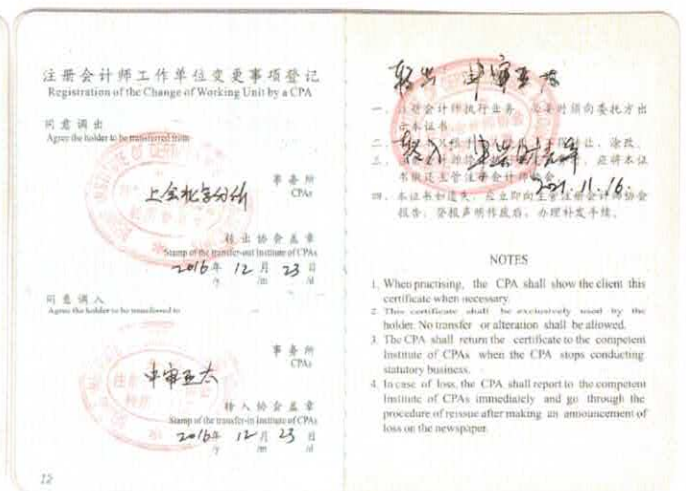 注册会计师工作单位变更事项登记
Registration of the Change of Working Unit by a CPA
同意调出
Agree the holder to be transferred from
上会北京分所
事务所
CPAs
转出协会盖章
Stamp of the transfer-out Institute of CPAs
2016年 12月 23日
/y /m /d
同意调入
Agree the holder to be transferred to
中审亚太
事务所
CPAs
转入协会盖章
Stamp of the transfer-in Institute of CPAs
2016年 12月 23日
/y /m /d
12
转出 中审亚太
一、注册会计师执行业务，必要时须向委托方出
示本证书。
转入
2021.11.16.
四、本证书如遗失，应立即向主管注册会计师协会
报告，登报声明作废后，办理补发手续。
NOTES
1. When practising, the CPA shall show the client this
certificate when necessary.
2. This certificate shall be exclusively used by the
holder. No transfer or alteration shall be allowed.
3. The CPA shall return the certificate to the competent
Institute of CPAs when the CPA stops conducting
statutory business.
4. In case of loss, the CPA shall report to the competent
Institute of CPAs immediately and go through the
procedure of reissue after making an announcement of
loss on the newspaper.